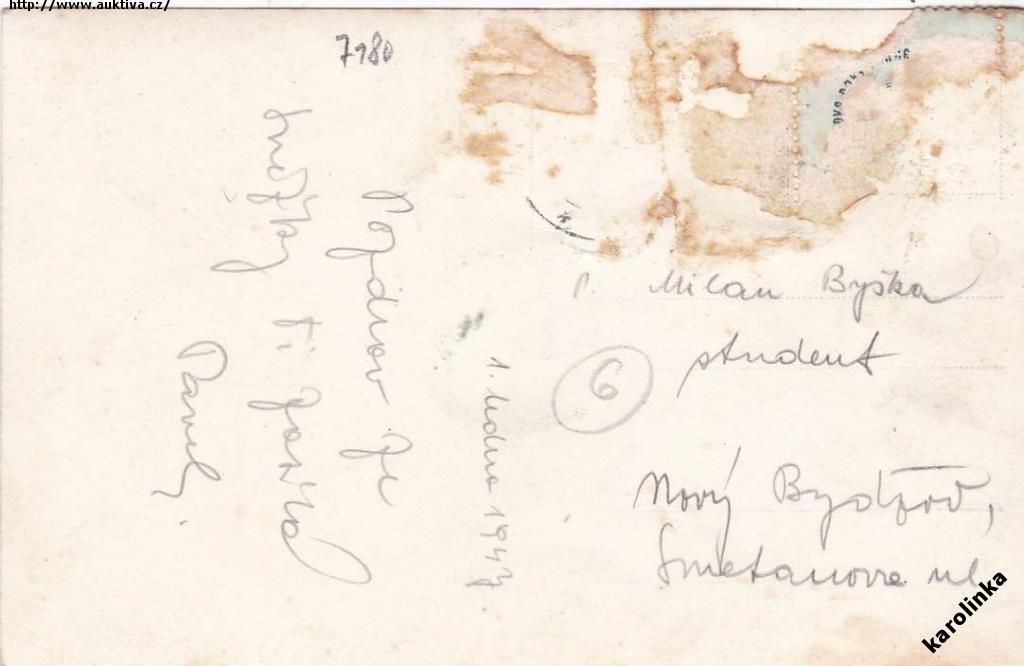 http://www.auktiva.cz/
7980
Pozdrav ze
ti
Pavel.
1. ledna 1947.
P. Milan Byška
student
6
Nový Bydžov,
Smetanova ul.
karolinka